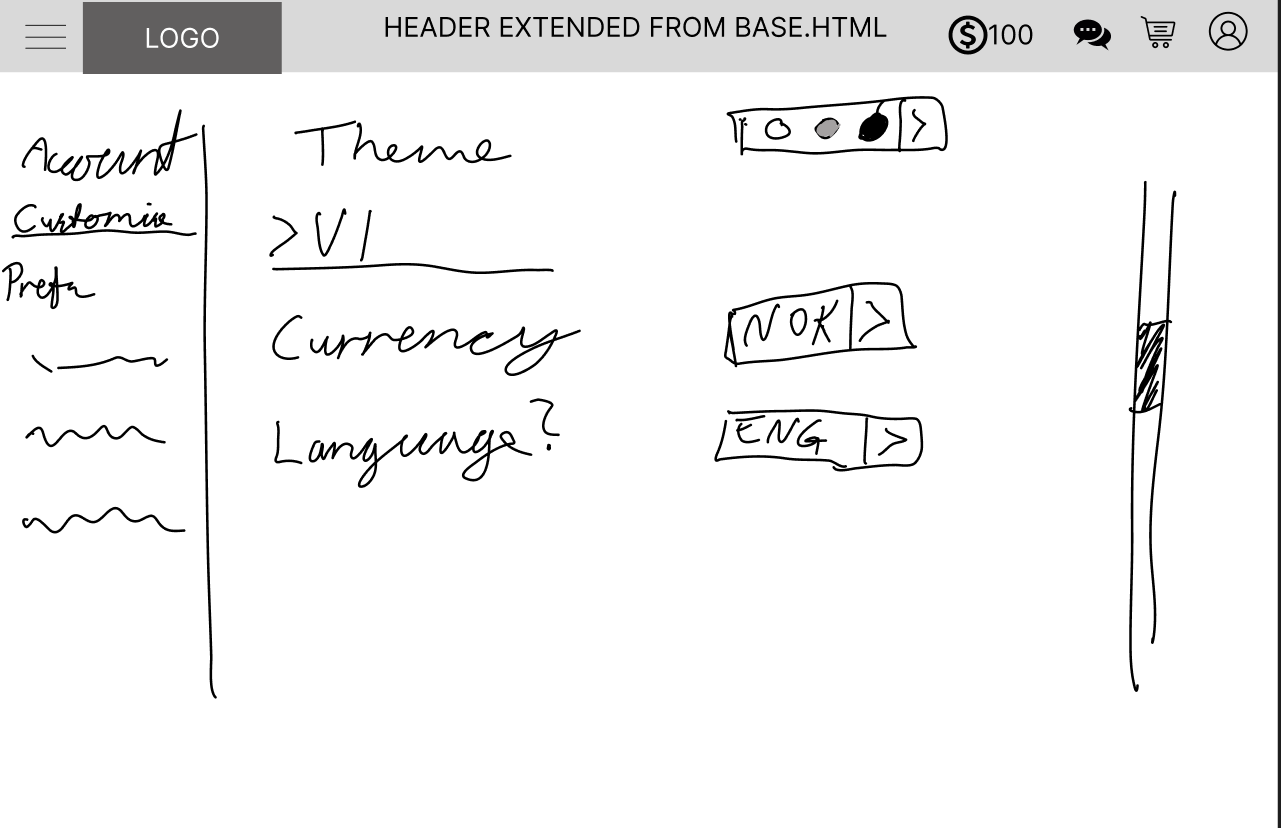 LOGO
HEADER EXTENDED FROM BASE.HTML
100
Account
Customize
Theme
>
> VI
Currency
NOK >
Language?
ENG >